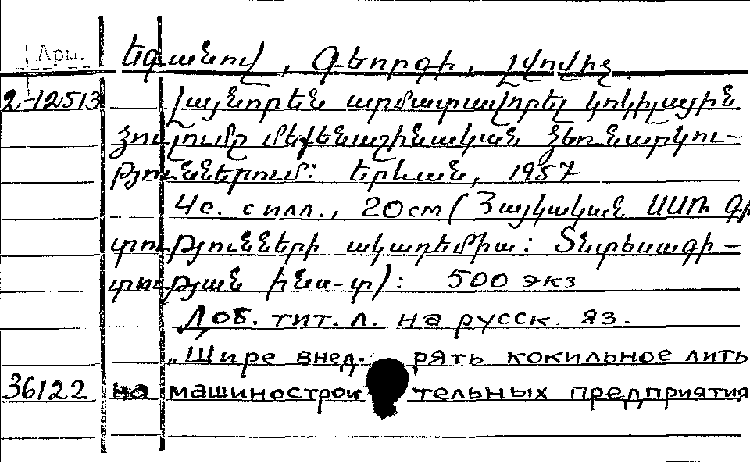 Арм.
Եգանով, Գեորգի, Լվովիչ
2-12513 Լայնորեն արմատավորել կոկիլային
ձուլումը մեքենաշինական ձեռնարկու-
թյուններում: Երևան, 1957
4 с. с илл., 20 см (Հայկական ՍՍՌ գի
տությունների ակադեմիա: Տնտեսագի-
տության ինս-տ): 500 экз
Доб. тит. л. на русск. яз.
„Шире внед- рять кокильное лить
36122 на машинострои тельных предприятия